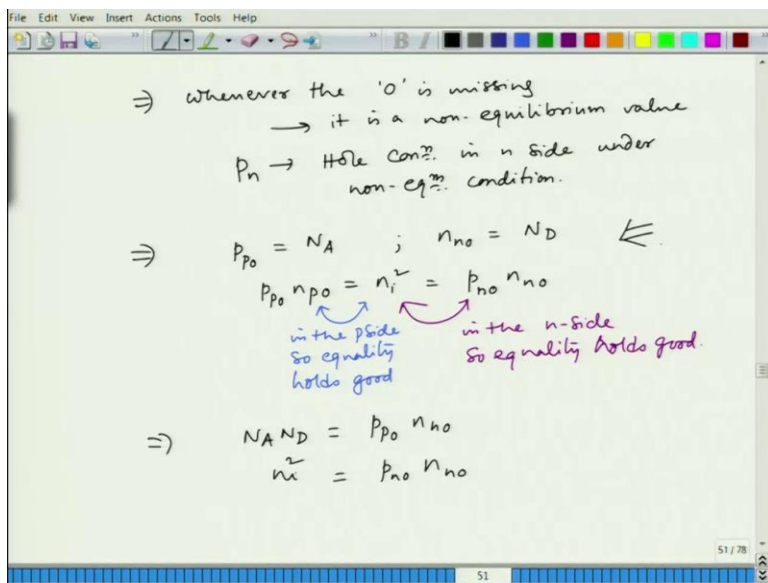 File Edit View Insert Actions Tools Help
B I
⇒ whenever the 'o' is missing
→ it is a non-equilibrium value
Pn → Hole concn. in n side under
non-eqm. condition.
⇒ Ppo = NA ; nno = ND
Ppo npo = ni² = pno nno
in the pside
so equality
holds good
in the n-side
so equality holds good.
⇒ NA ND = Ppo nno
ni² = pno nno
51 / 78
51